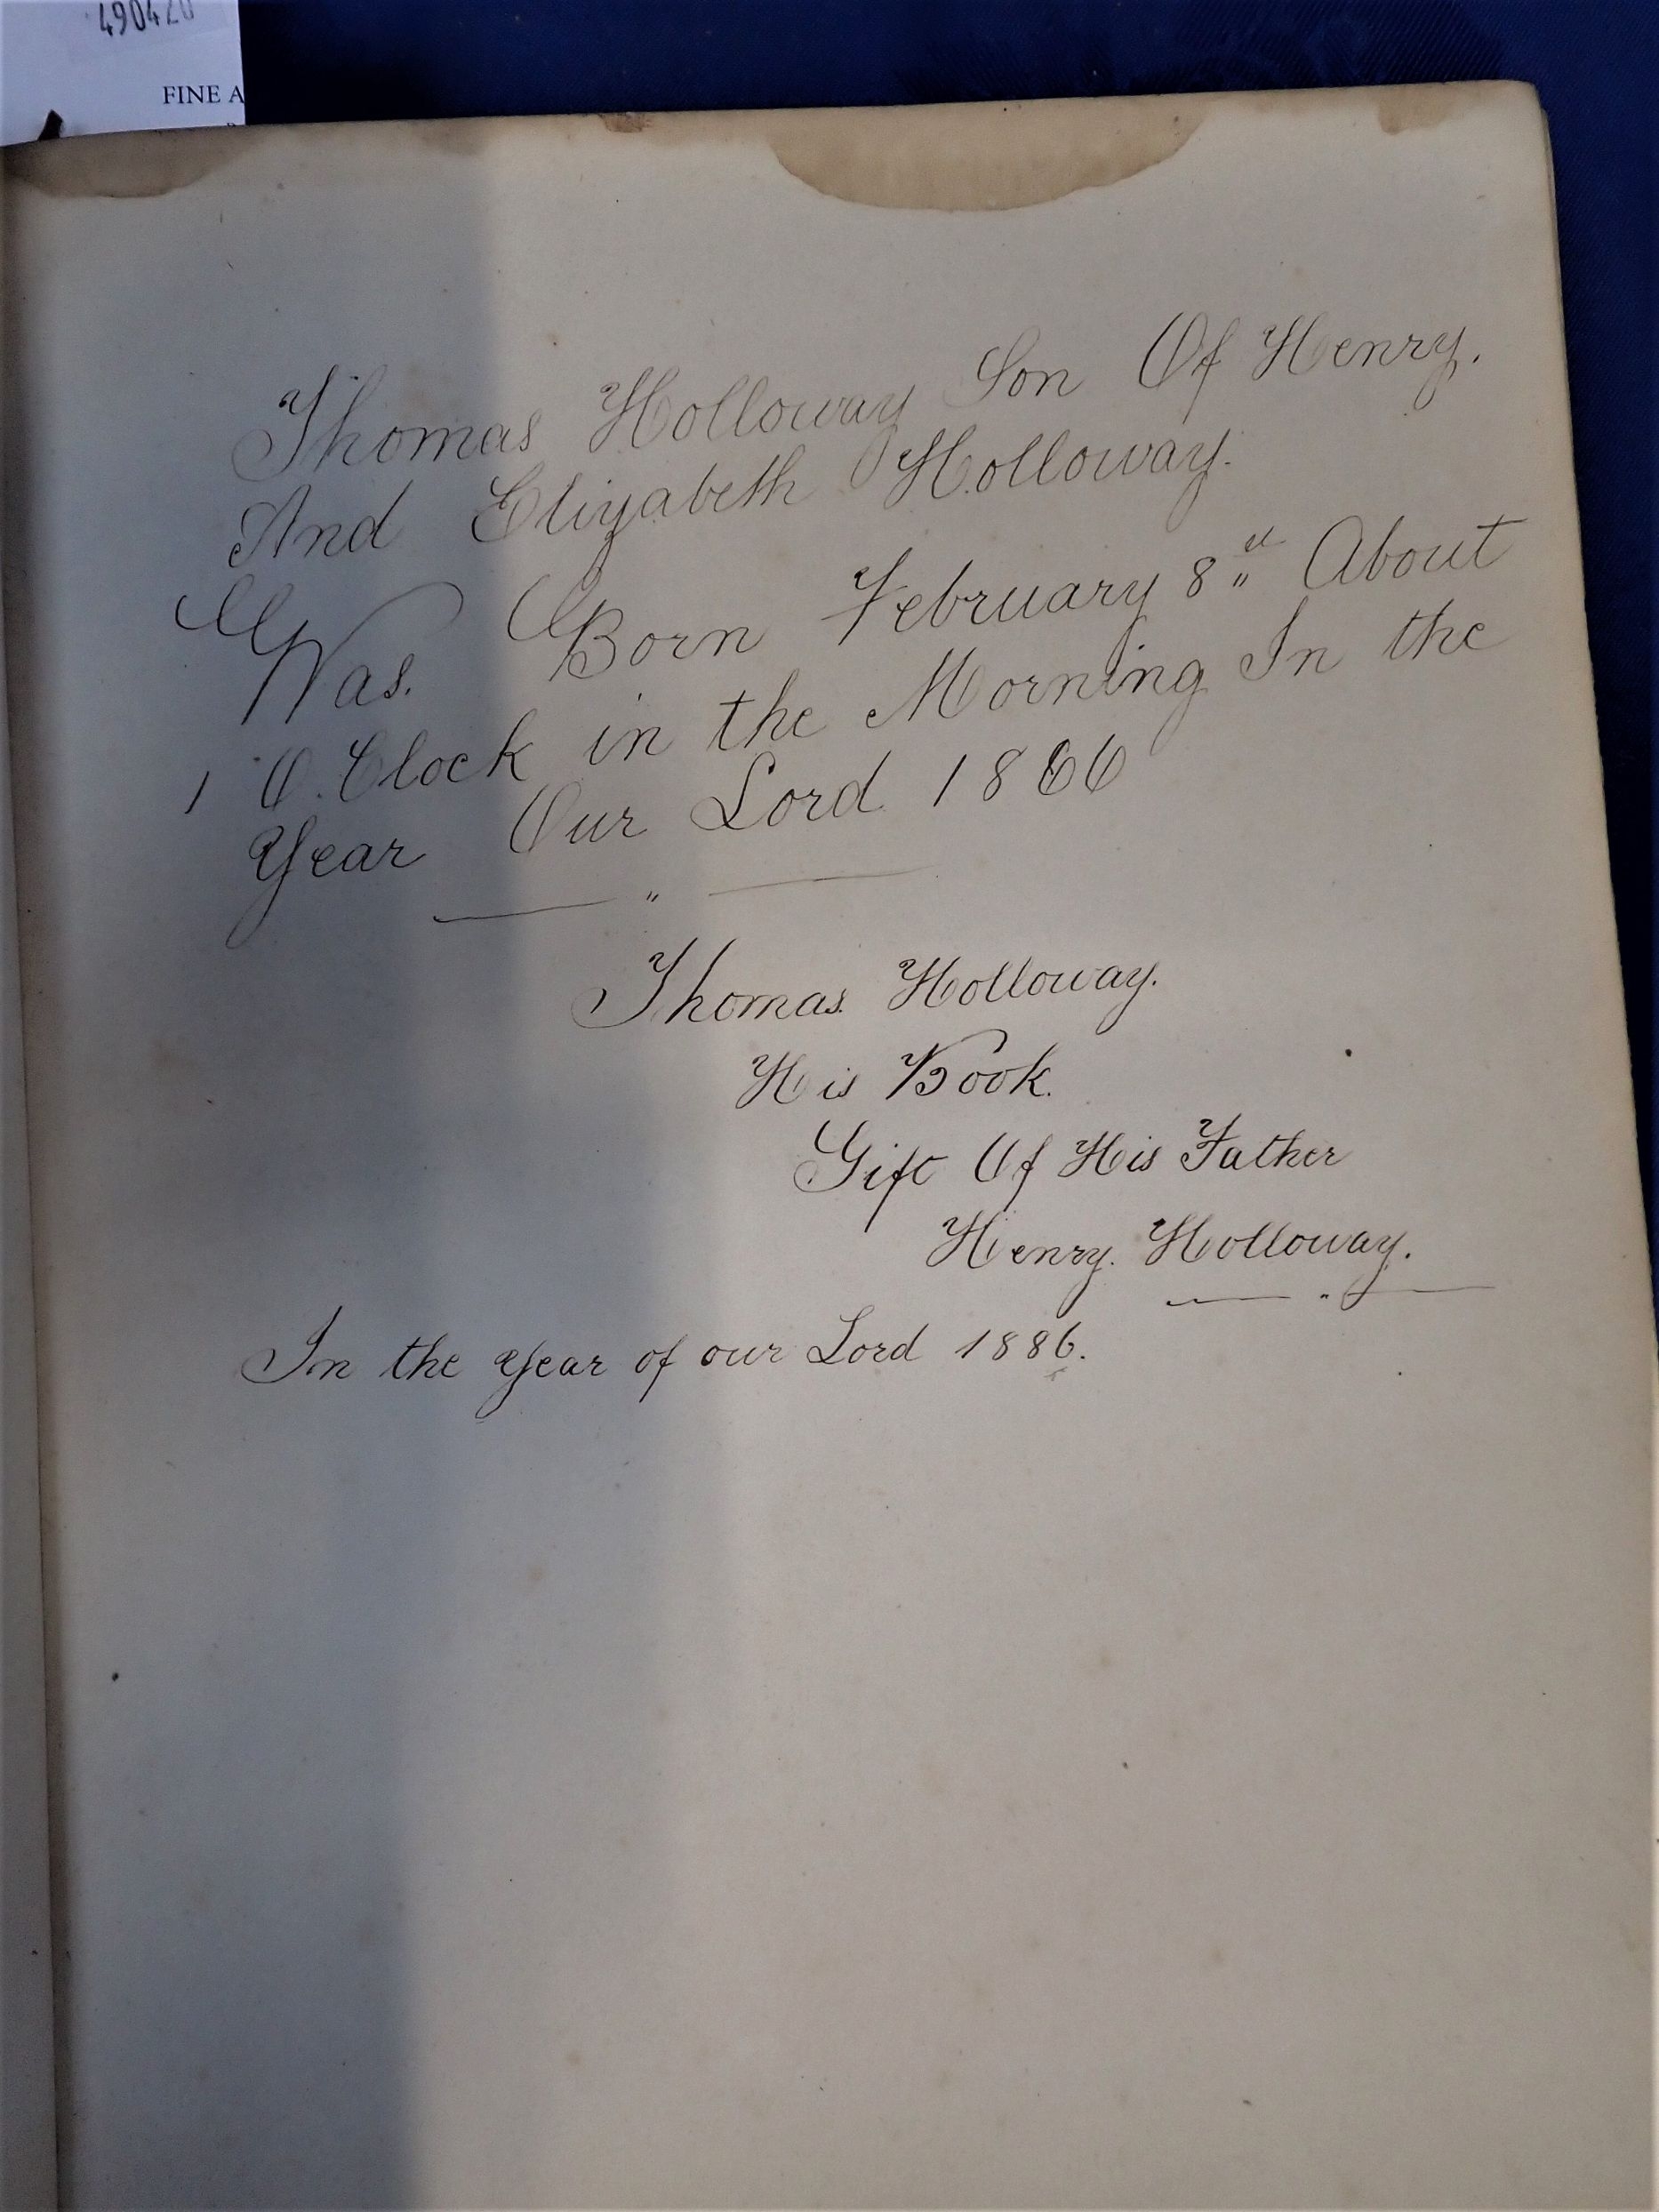 490420
FINE A
Thomas Holloway Son Of Henry.
And Elizabeth Holloway.
Was. Born February 8 About
1 O. Clock in the Morning In the
Year Our Lord 1866
Thomas. Holloway.
His Book.
Gift Of His Father
Henry. Holloway.
In the Year of our Lord 1886.